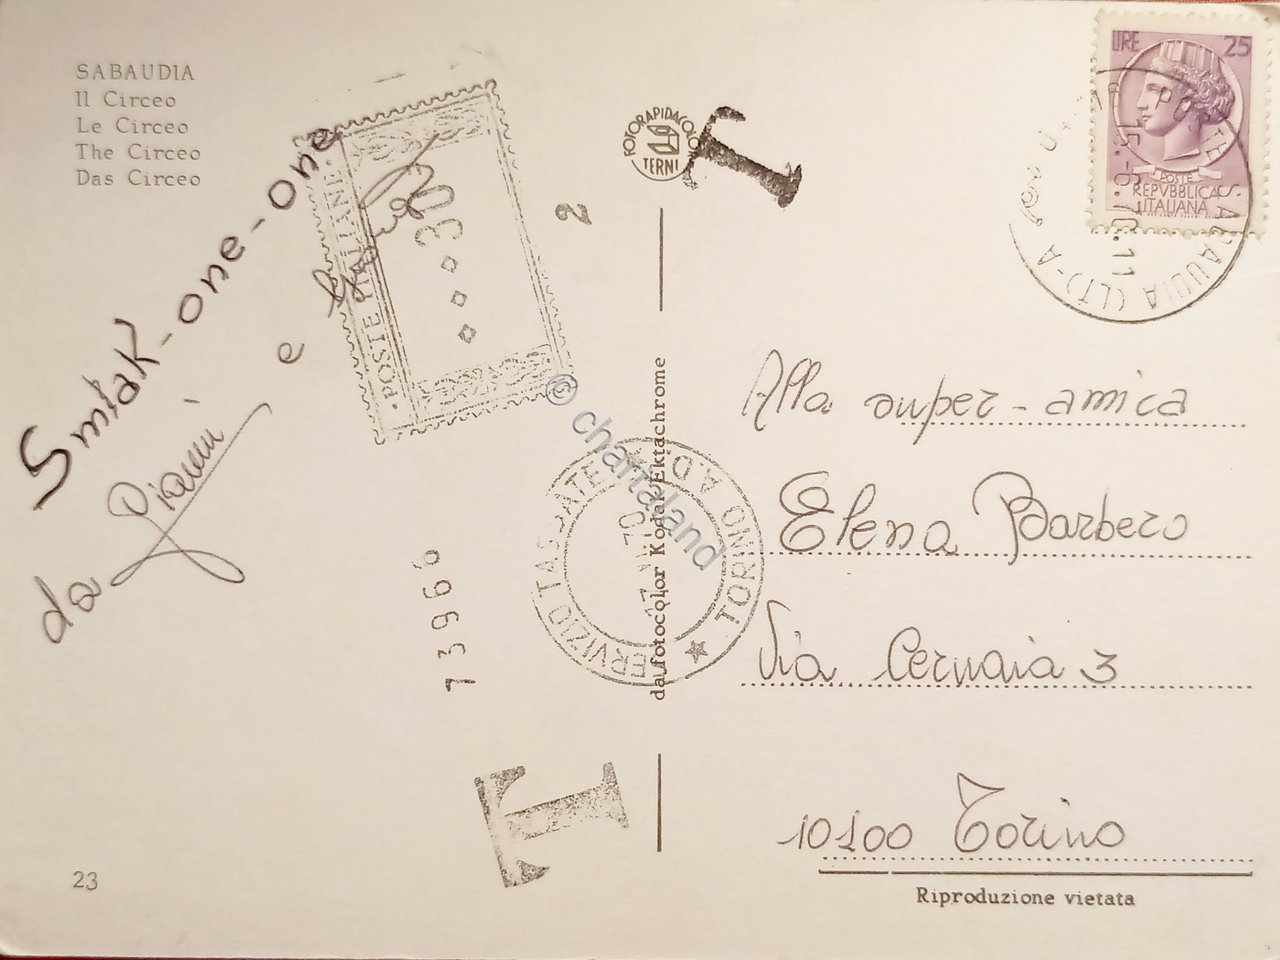 SABAUDIA
Il Circeo
Le Circeo
The Circeo
Das Circeo
Smtak-one-one
da Gianni e
POSTE ITALIANE
30
2
FOTORAPIDACOLOR
TERNI
T
LIRE 25
POSTE
REPVBBLICA
ITALIANA
SABAUDIA (LT)-A
Alla super-amica
Elena Barbero
Via Cernaia 3
10100 Torino
Riproduzione vietata
da fotocolor Kodak Ektachrome
SERVIZIO TASSATE
TORINO A.D.
73966
T
23
© chartaland